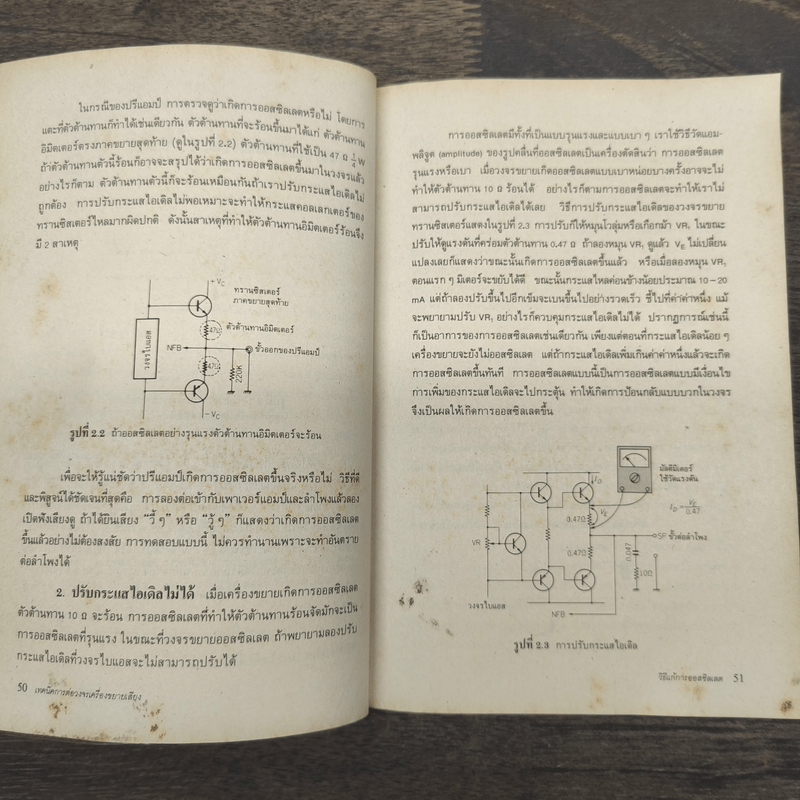 ในกรณีของปรีแอมป์ การตรวจดูว่าเกิดการออสซิลเลตหรือไม่ โดยการ
แตะที่ตัวต้านทานก็ทำได้เช่นเดียวกัน ตัวต้านทานที่จะร้อนขึ้นมาได้แก่ ตัวต้านทาน
อิมิตเตอร์ตรงภาคขยายสุดท้าย (ดูในรูปที่ 2.2) ตัวต้านทานที่ใช้เป็น 47 Ω 1/4 W
ถ้าตัวต้านทานตัวนี้ร้อนก็อาจจะสรุปได้ว่าเกิดการออสซิลเลตขึ้นมาในวงจรแล้ว
อย่างไรก็ตาม ตัวต้านทานตัวนี้ก็จะร้อนเหมือนกันถ้าเราปรับกระแสไอเดิลไม่
ถูกต้อง การปรับกระแสไอเดิลไม่พอเหมาะจะทำให้กระแสคอลเลกเตอร์ของ
ทรานซิสเตอร์ไหลมากผิดปกติ ดังนั้นสาเหตุที่ทำให้ตัวต้านทานอิมิตเตอร์ร้อนจึง
มี 2 สาเหตุ
+VC
ทรานซิสเตอร์
ภาคขยายสุดท้าย
วงจรไบแอส
47Ω
ตัวต้านทานอิมิตเตอร์
NFB
ขั้วออกของปรีแอมป์
47Ω
220K
-VC
รูปที่ 2.2 ถ้าออสซิลเลตอย่างรุนแรงตัวต้านทานอิมิตเตอร์จะร้อน
เพื่อจะให้รู้แน่ชัดว่าปรีแอมป์เกิดการออสซิลเลตขึ้นจริงหรือไม่ วิธีที่ดี
และพิสูจน์ได้ชัดเจนที่สุดคือ การลองต่อเข้ากับเพาเวอร์แอมป์และลำโพงแล้วลอง
เปิดฟังเสียงดู ถ้าได้ยินเสียง “วี้ ๆ” หรือ “วู้ ๆ” ก็แสดงว่าเกิดการออสซิลเลต
ขึ้นแล้วอย่างไม่ต้องสงสัย การทดสอบแบบนี้ ไม่ควรทำนานเพราะจะทำอันตราย
ต่อลำโพงได้
2. ปรับกระแสไอเดิลไม่ได้ เมื่อเครื่องขยายเกิดการออสซิลเลต
ตัวต้านทาน 10 Ω จะร้อน การออสซิลเลตที่ทำให้ตัวต้านทานร้อนจัดมักจะเป็น
การออสซิลเลตที่รุนแรง ในขณะที่วงจรขยายออสซิลเลต ถ้าพยายามลองปรับ
กระแสไอเดิลที่วงจรไบแอสจะไม่สามารถปรับได้
50 เทคนิคการต่อวงจรเครื่องขยายเสียง
การออสซิลเลตมีทั้งที่เป็นแบบรุนแรงและแบบเบา ๆ เราใช้วิธีวัดแอม-
พลิจูด (amplitude) ของรูปคลื่นที่ออสซิลเลตเป็นเครื่องตัดสินว่า การออสซิลเลต
รุนแรงหรือเบา เมื่อวงจรขยายเกิดออสซิลเลตแบบเบาหน่อยบางครั้งอาจจะไม่
ทำให้ตัวต้านทาน 10 Ω ร้อนได้ อย่างไรก็ตามการออสซิลเลตจะทำให้เราไม่
สามารถปรับกระแสไอเดิลได้เลย วิธีการปรับกระแสไอเดิลของวงจรขยาย
ทรานซิสเตอร์แสดงในรูปที่ 2.3 การปรับก็ให้หมุนโวลุ่มหรือเกือกม้า VR, ในขณะ
ปรับให้ดูแรงดันที่คร่อมตัวต้านทาน 0.47 Ω ถ้าลองหมุน VR, ดูแล้ว VE ไม่เปลี่ยน
แปลงเลยก็แสดงว่าขณะนั้นเกิดการออสซิลเลตขึ้นแล้ว หรือเมื่อลองหมุน VR,
ตอนแรก ๆ มิเตอร์จะขยับได้ดี ขณะนั้นกระแสไหลค่อนข้างน้อยประมาณ 10–20
mA แต่ถ้าลองปรับขึ้นไปอีกเข็มจะเบนขึ้นไปอย่างรวดเร็ว ชี้ไปที่ค่าค่าหนึ่ง แม้
จะพยายามปรับ VR, อย่างไรก็ควบคุมกระแสไอเดิลไม่ได้ ปรากฏการณ์เช่นนี้
ก็เป็นอาการของการออสซิลเลตเช่นเดียวกัน เพียงแต่ตอนที่กระแสไอเดิลน้อย ๆ
เครื่องขยายจะยังไม่ออสซิลเลต แต่ถ้ากระแสไอเดิลเพิ่มเกินค่าค่าหนึ่งแล้วจะเกิด
การออสซิลเลตขึ้นทันที การออสซิลเลตแบบนี้เป็นการออสซิลเลตแบบมีเงื่อนไข
การเพิ่มของกระแสไอเดิลจะไปกระตุ้น ทำให้เกิดการป้อนกลับแบบบวกในวงจร
จึงเป็นผลให้เกิดการออสซิลเลตขึ้น
มัลติมิเตอร์
ใช้วัดแรงดัน
ID
ID = VE/0.47
0.47Ω
VE
VR
0.47Ω
SP ขั้วต่อลำโพง
0.047
10Ω
วงจรไบแอส
NFB
รูปที่ 2.3 การปรับกระแสไอเดิล
วิธีแก้การออสซิลเลต 51